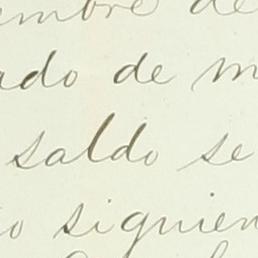 embre de
ado de m
saldo se
o siguien